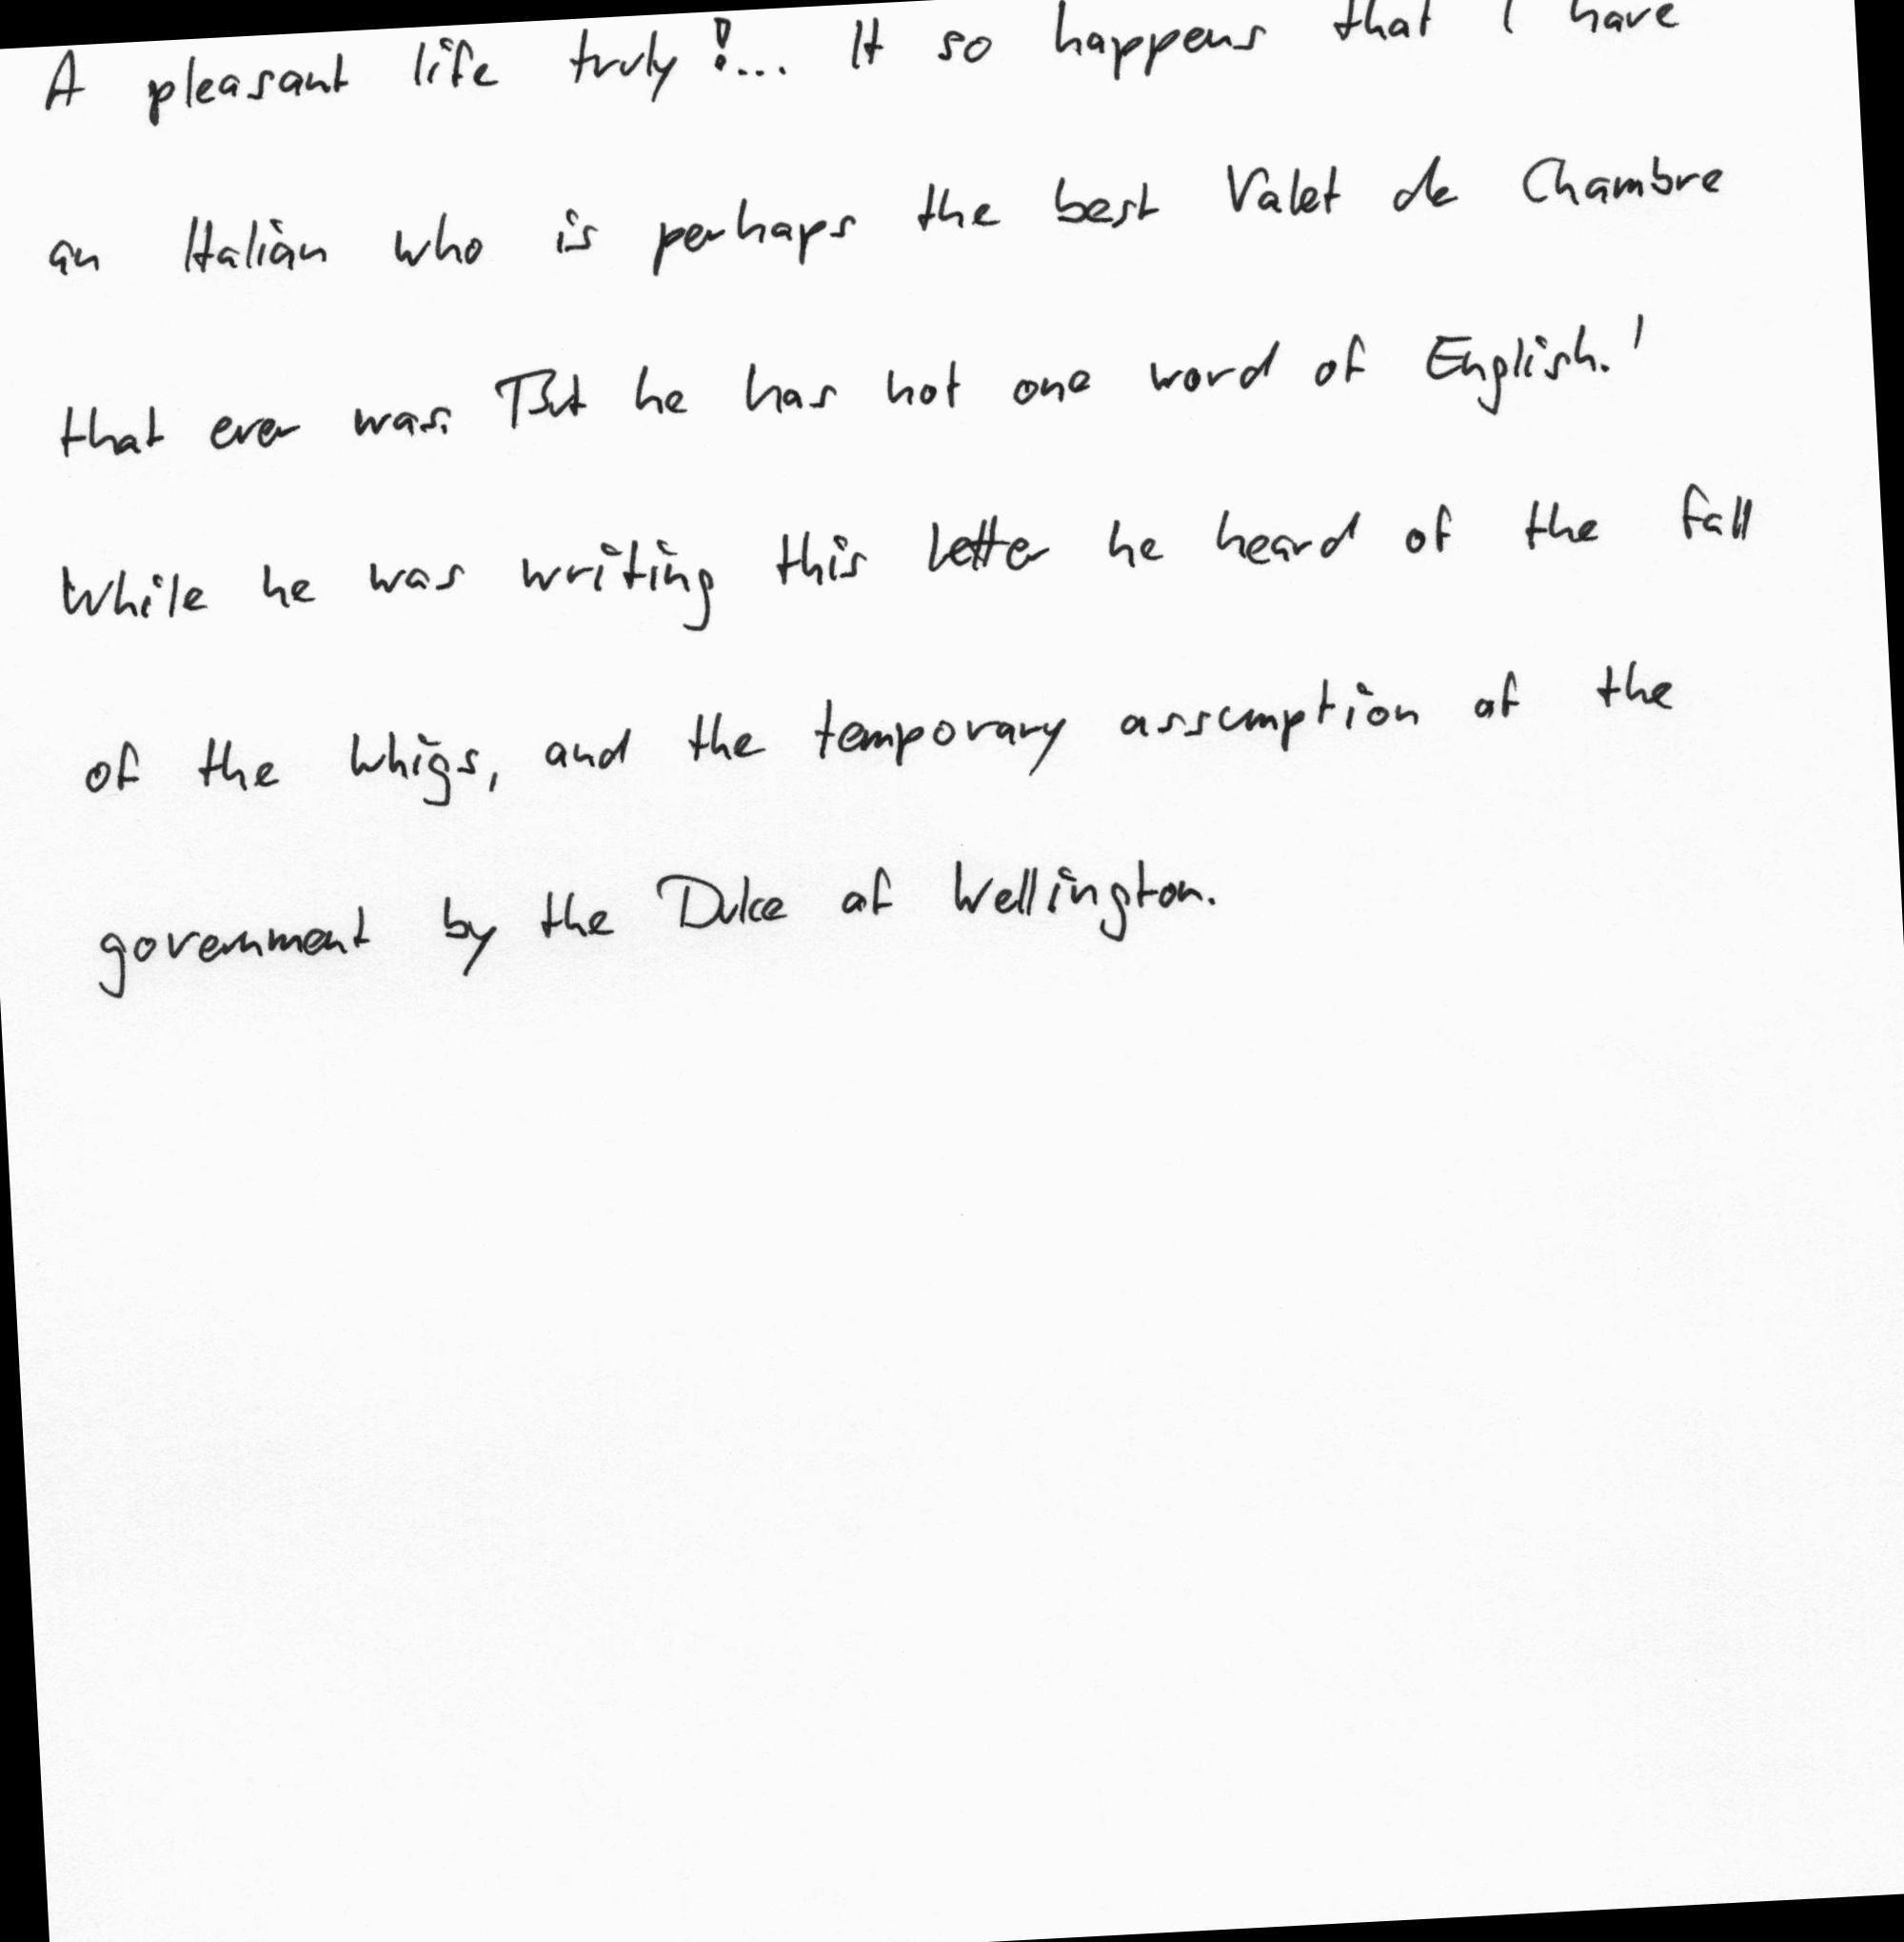 A pleasant life truly!... It so happens that I have
an Italian who is perhaps the best Valet de Chambre
that ever was. But he has not one word of English.'
While he was writing this letter he heard of the fall
of the Whigs, and the temporary assumption of the
government by the Duke of Wellington.